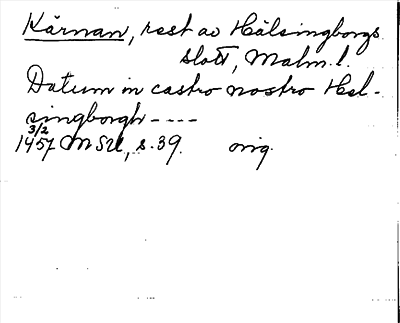 Kärnan, rest av Hälsingborgs
slott, Malm. l.
Datum in castro nostro Hel-
singborgh ----
3/2
1457 MSU, s. 39. orig.